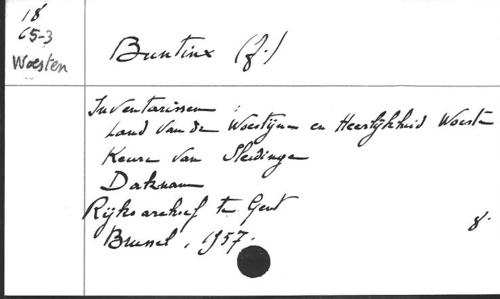 18
65-3
Woesten
Buntinx (J.)
Inventarissen :
Land van der Woestijne en Heerlijkheid Woesten
Keure van Sleidinge
Daknam
Rijksarchief te Gent
8.
Brussel, 1957.